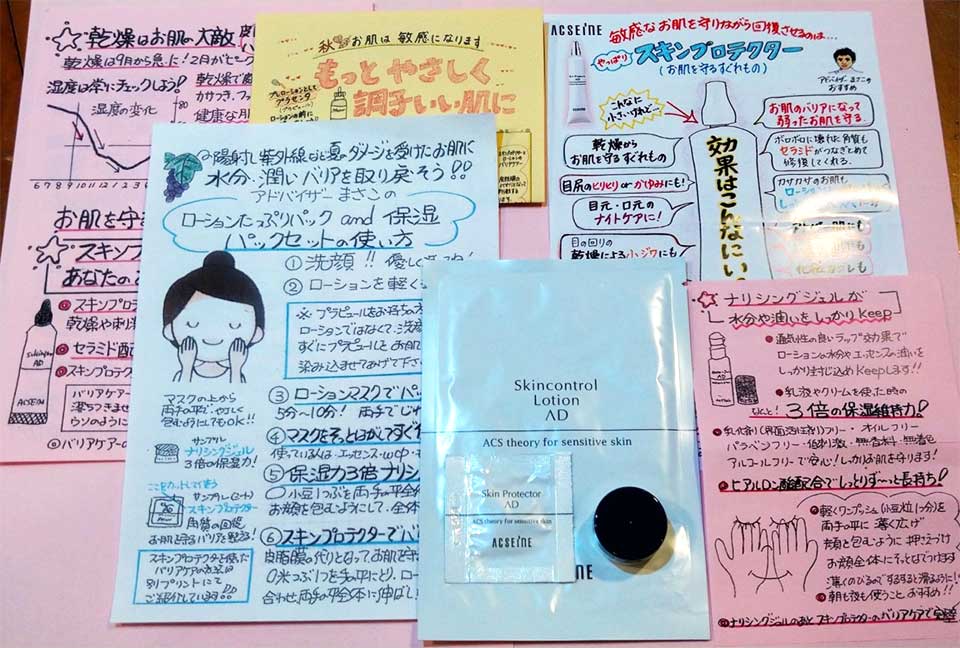 乾燥はお肌の大敵
乾燥は9月から急に!2月がピーク
湿度は常にチェックしよう!
乾燥で
かさつき、フッ
健康な肌
湿度の変化
80
6 7 8 9 10 11 12 1 2 3
お肌を守
スキン
あなたの
スキンプロ
乾燥や刺
セラミド配
スキンプロテクタ
バリアケア
落ちつきませ
ウンのように
バリアケアの
ACSEINE
AD
秋お肌は敏感になります
もっとやさしく
調子いい肌に
プレローションとして
プラセンタ
ローションの前に
ACSEINE
敏感なお肌を守りながら回復させるのは…
やっぱり
スキンプロテクター
(お肌を守るすぐれもの)
アドバイザーまさこの
おすすめ
こんなに
小さいけれど
乾燥から
お肌を守るすぐれもの
目尻のヒリヒリorかゆみにも!
目元・口元の
ナイトケアに!
目の回りの
乾燥による小ジワにも
効果はこんなにい
お肌のバリアになって
弱ったお肌を守る
ボロボロに壊れた角質も
セラミドがつなぎとめて
修復してくれる。
カサカサのお肌も
陽射し紫外線など夏のダメージを受けたお肌に
水分、潤い、バリアを取り戻そう!!
アドバイザーまさこの
ローションたっぷりパック and 保湿
パックセットの使い方
① 洗顔!! 優し
② ローションを軽く
※ プラピュールをお持ちの方
ローションではなくて、洗顔
すぐにプラピュールをお肌
染み込ませてあげて下さ
③ ローションマスクでパッ
5分~10分! 両手でじ
④ マスクをそっとはがしてすぐ
使っている人は、エッセンス
⑤ 保湿力3倍ナリシ
小豆1つぶを両手の平全体
お顔を包むようにして、全体
⑥ スキンプロテクターでバ
皮脂膜の代りとなってお肌を守
米つぶ1つを手の平にとり、ロー
合わせ両手の平全体に伸ばし
マスクの上から
両手の平で、やさしく
包むようにしてもOK!!
サンプル
ナリシングジェル
3倍の保湿力!
ここをカットして使う
サンプル(シート)
スキンプロテクター
角質の回復
お肌を守るバリアを整える!
スキンプロテクタを使った
バリアケアの方法は
別プリントにて
ご紹介しています!!
Skincontrol
Lotion
AD
ACS theory for sensitive skin
Skin Protector
AD
ACS theory for sensitive skin
ACSEINE
INE
ナリシングジェルが
水分や潤いをしっかりKeep
通気性の良いラップ効果で
ローションの水分やエッセンスの潤いを
しっかり封じ込めKeepします!!
乳液やクリームを使った時の
なんと!
3倍の保湿維持力!
乳化剤(界面活性剤)フリー・オイルフリー
パラベンフリー・低刺激・無香料・無着色
アルコールフリーで安心!しっかりお肌を守ります!
ヒアルロン酸配合でしっとりず~っと長持ち!
軽くワンプッシュ(小豆粒1つ分)を
両手の平に薄く広げ
頬を包むように押えつけ
お顔全体にそっとなでつける
薄くのびるのでするすると滑るように!
朝も夜も使うことおすすめ!!
ナリシングジェルのあとスキンプロテクターのバリアケアで完璧